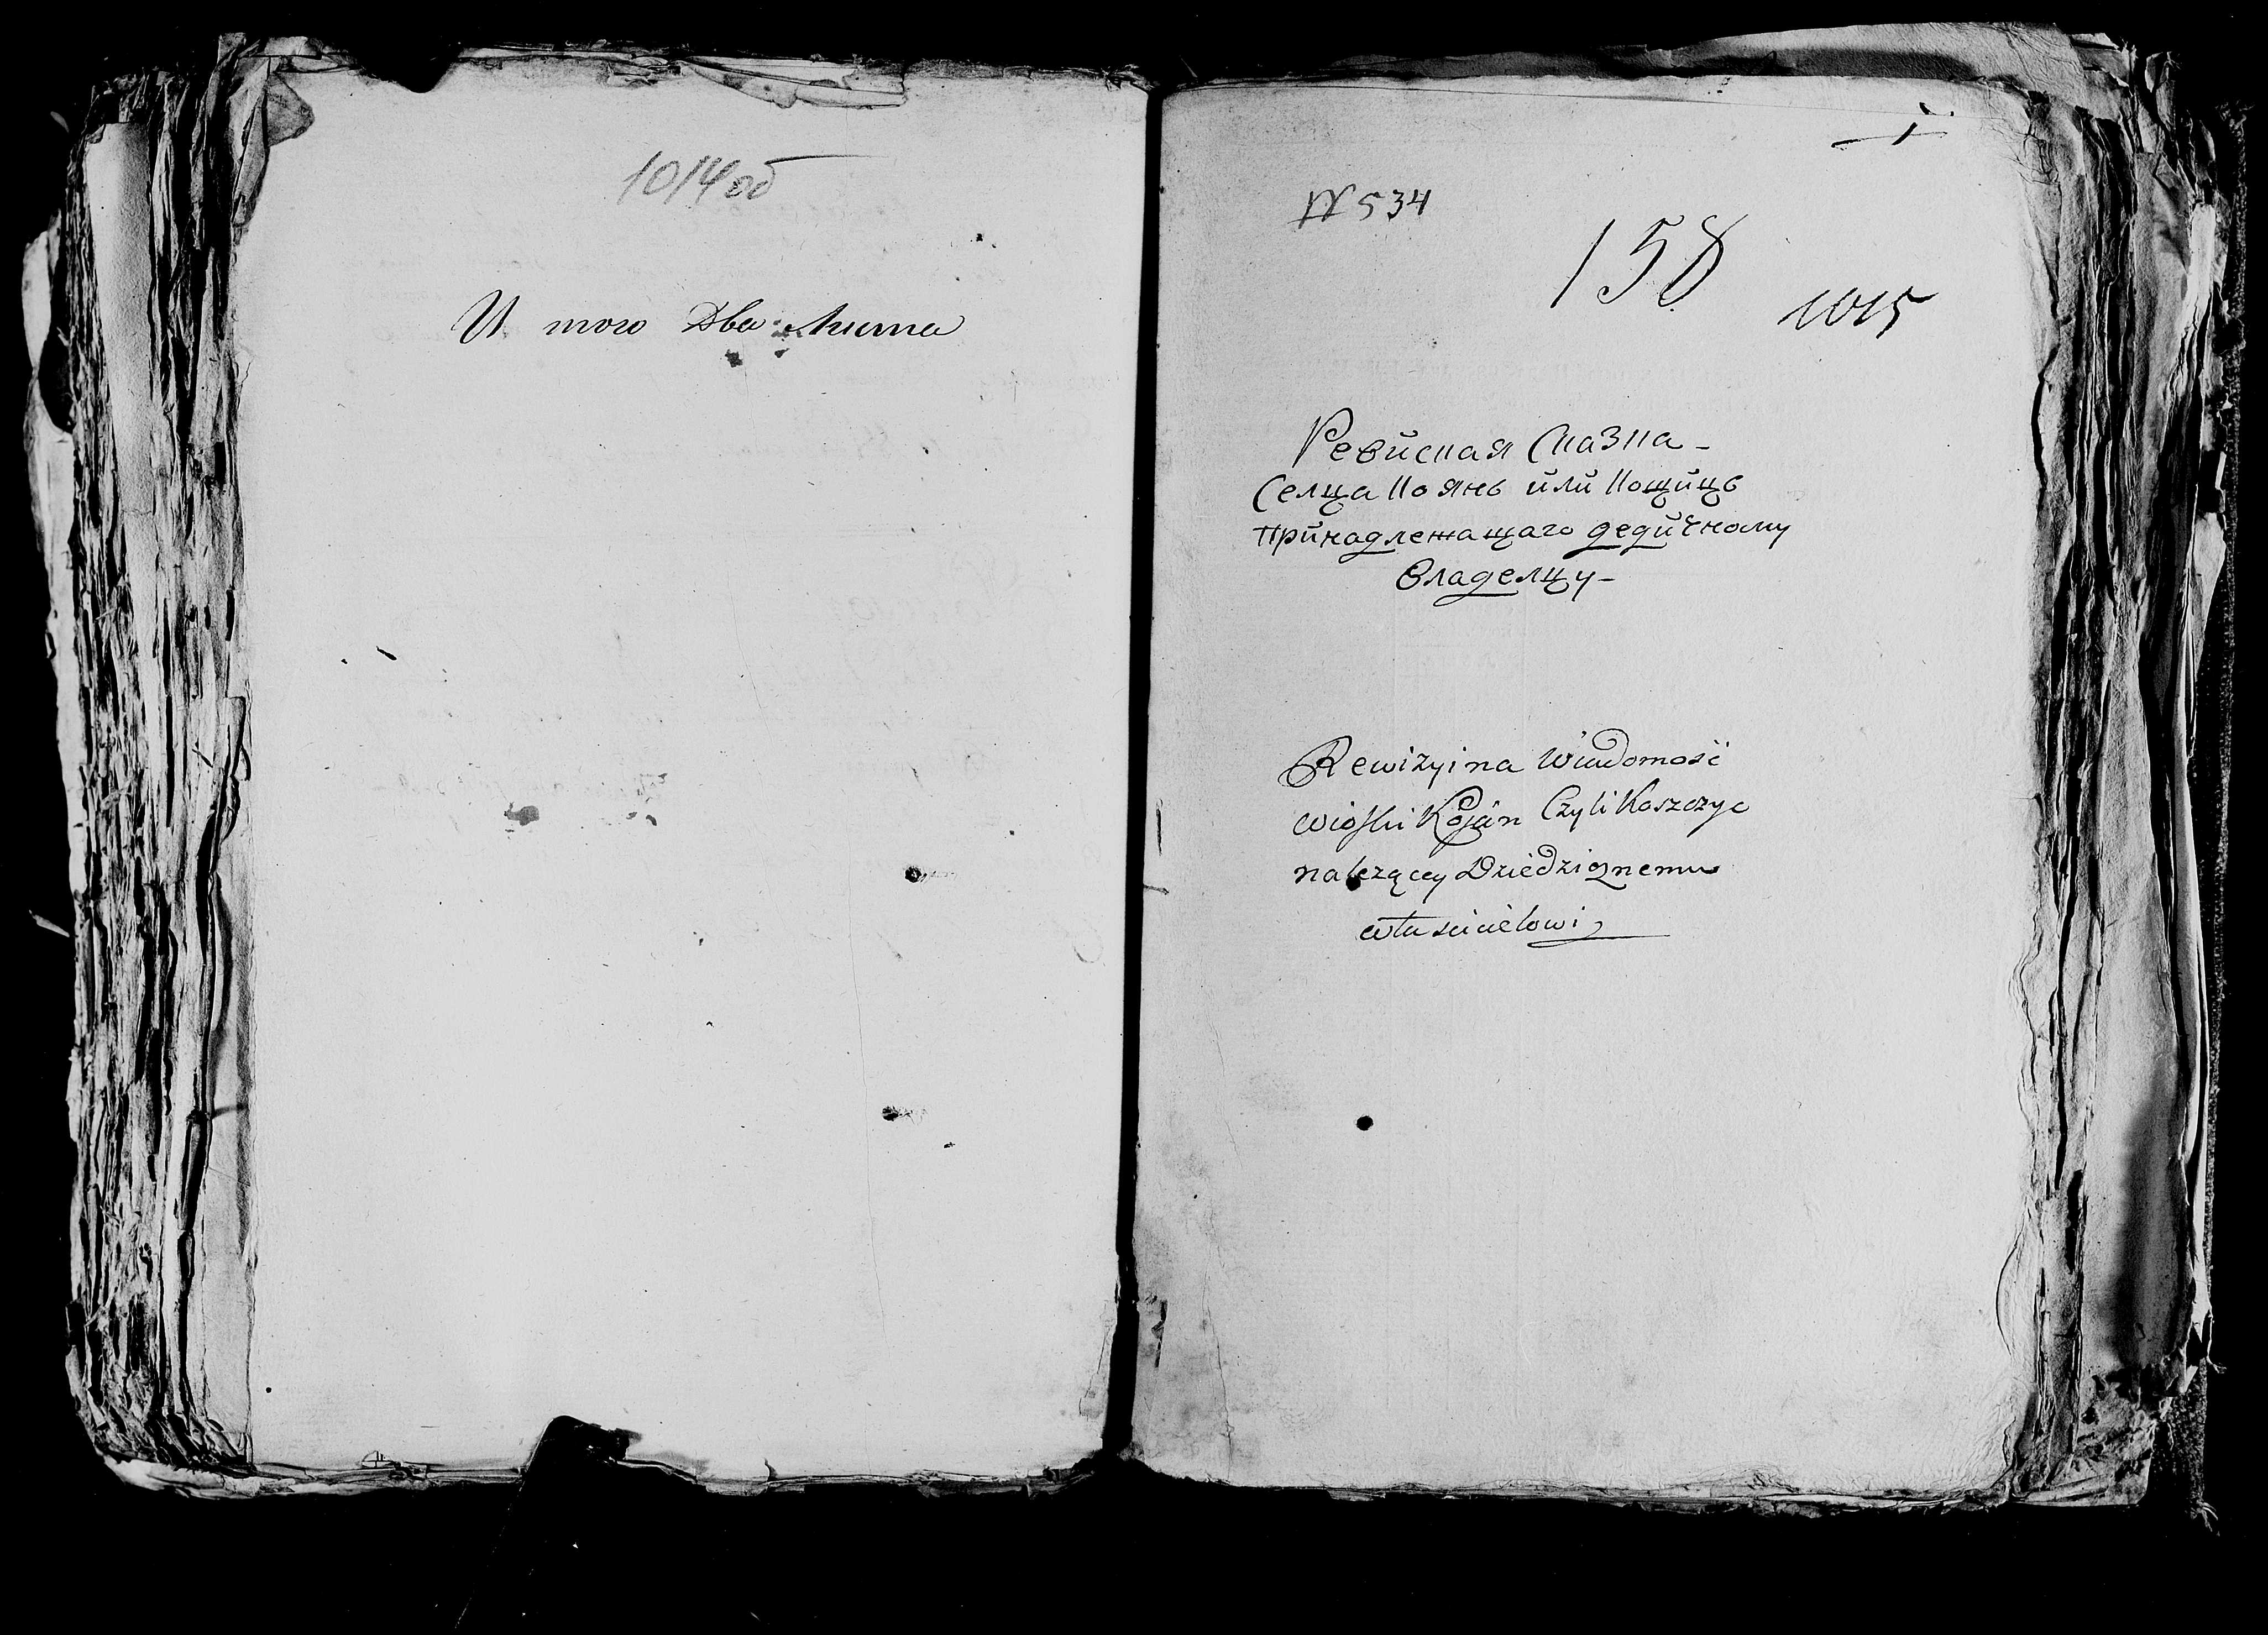 1014 об
И того Два Листа
1
N 534
158
1015
Ревиская Сказка -
Селца Коянь или Кощицъ
принадлежащаго дедичному
владелцу -
Rewizyina Wiadomość
wioski Kojan Czyli Koszczyc
należącey Dziedzicznemu
właścicielowi